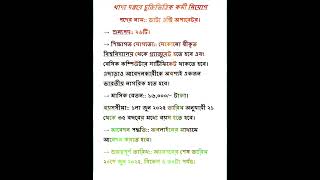 খাদ্য দপ্তরে চুক্তিভিত্তিক কর্মী নিয়োগ
পদের নাম:: ডাটা এন্ট্রি অপারেটর।
→ শূন্যপদ:: ২৬টি।
→ শিক্ষাগত যোগ্যতা:: যেকোনো স্বীকৃত
বিশ্ববিদ্যালয় থেকে গ্র্যাজুয়েট হতে হবে এবং
বেসিক কম্পিউটার সার্টিফিকেট থাকতে হবে।
এছাড়াও আবেদনকারীকে অবশ্যই একজন
ভারতীয় নাগরিক হতে হবে।
→ মাসিক বেতন:: ১৬,০০০/- টাকা।
বয়সসীমা:: ১লা জুন ২০২৫ তারিখ অনুযায়ী ২১
থেকে ৩৫ বছরের মধ্যে বয়স হতে হবে।
→ আবেদন পদ্ধতি:: অনলাইনের মাধ্যমে
আবেদন করতে হবে।
→ গুরুত্বপূর্ণ তারিখ:: আবেদনের শেষ তারিখ
২০শে জুন ২০২৫, বিকেল ৫ টা পর্যন্ত।